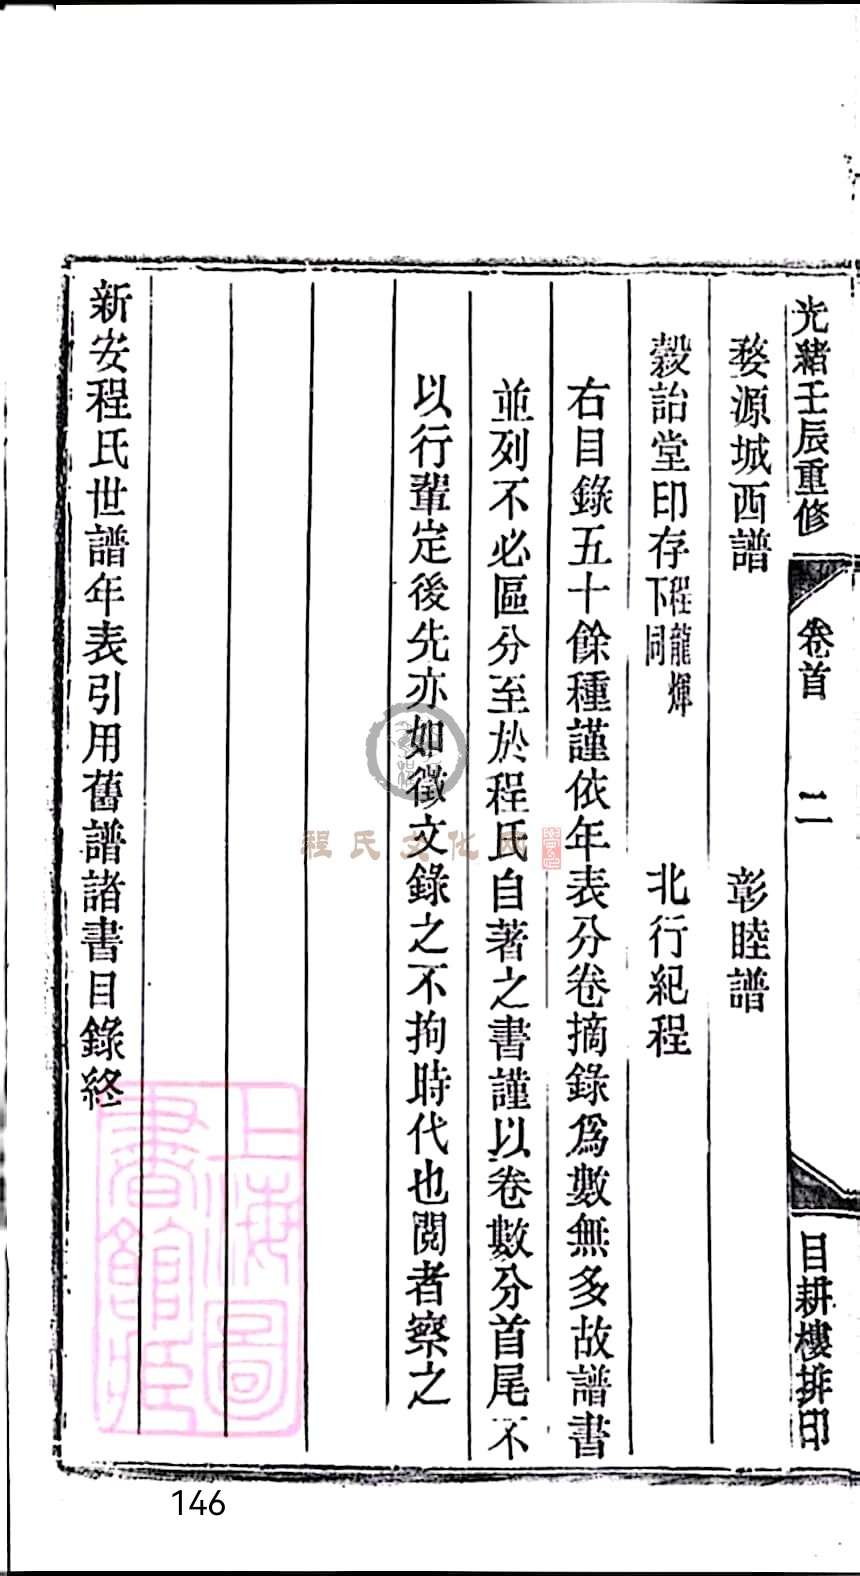 光緒壬辰重修 卷首 二 目耕樓排印
婺源城西譜 彰睦譜
穀詒堂印存程龍煇下同 北行紀程
右目錄五十餘種謹依年表分卷摘錄爲數無多故譜書
並列不必區分至於程氏自著之書謹以卷數分首尾不
以行輩定後先亦如徵文錄之不拘時代也閱者察之
新安程氏世譜年表引用舊譜諸書目錄終
程氏文化网
上海圖
書館藏
146